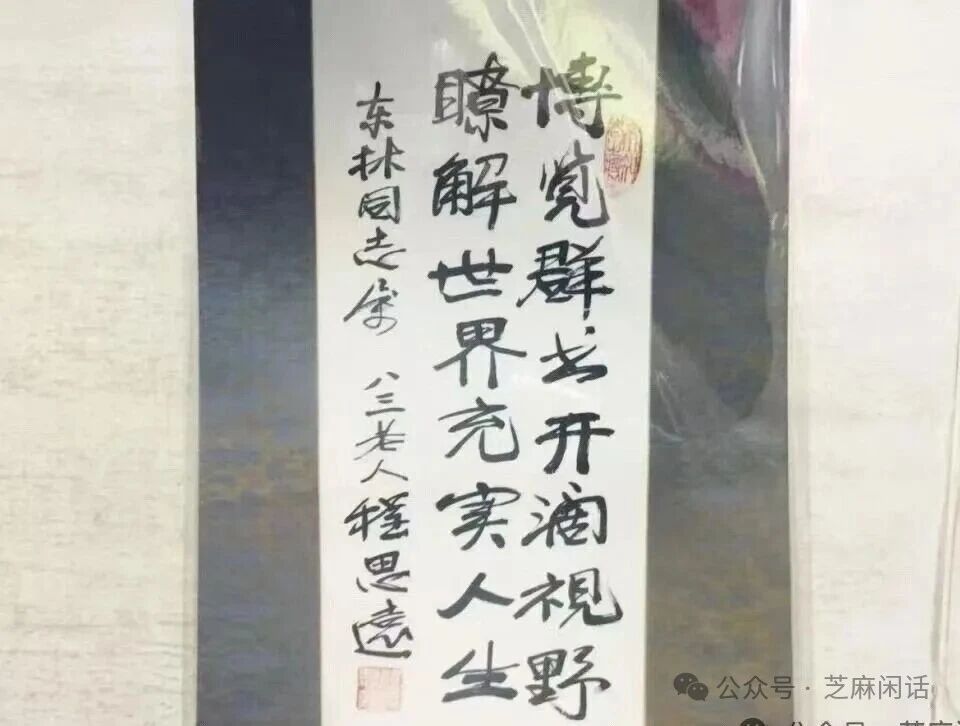 博览群书开濶視野
瞭解世界充实人生
东林同志属 八三老人程思遠
公众号 · 芝麻闲话